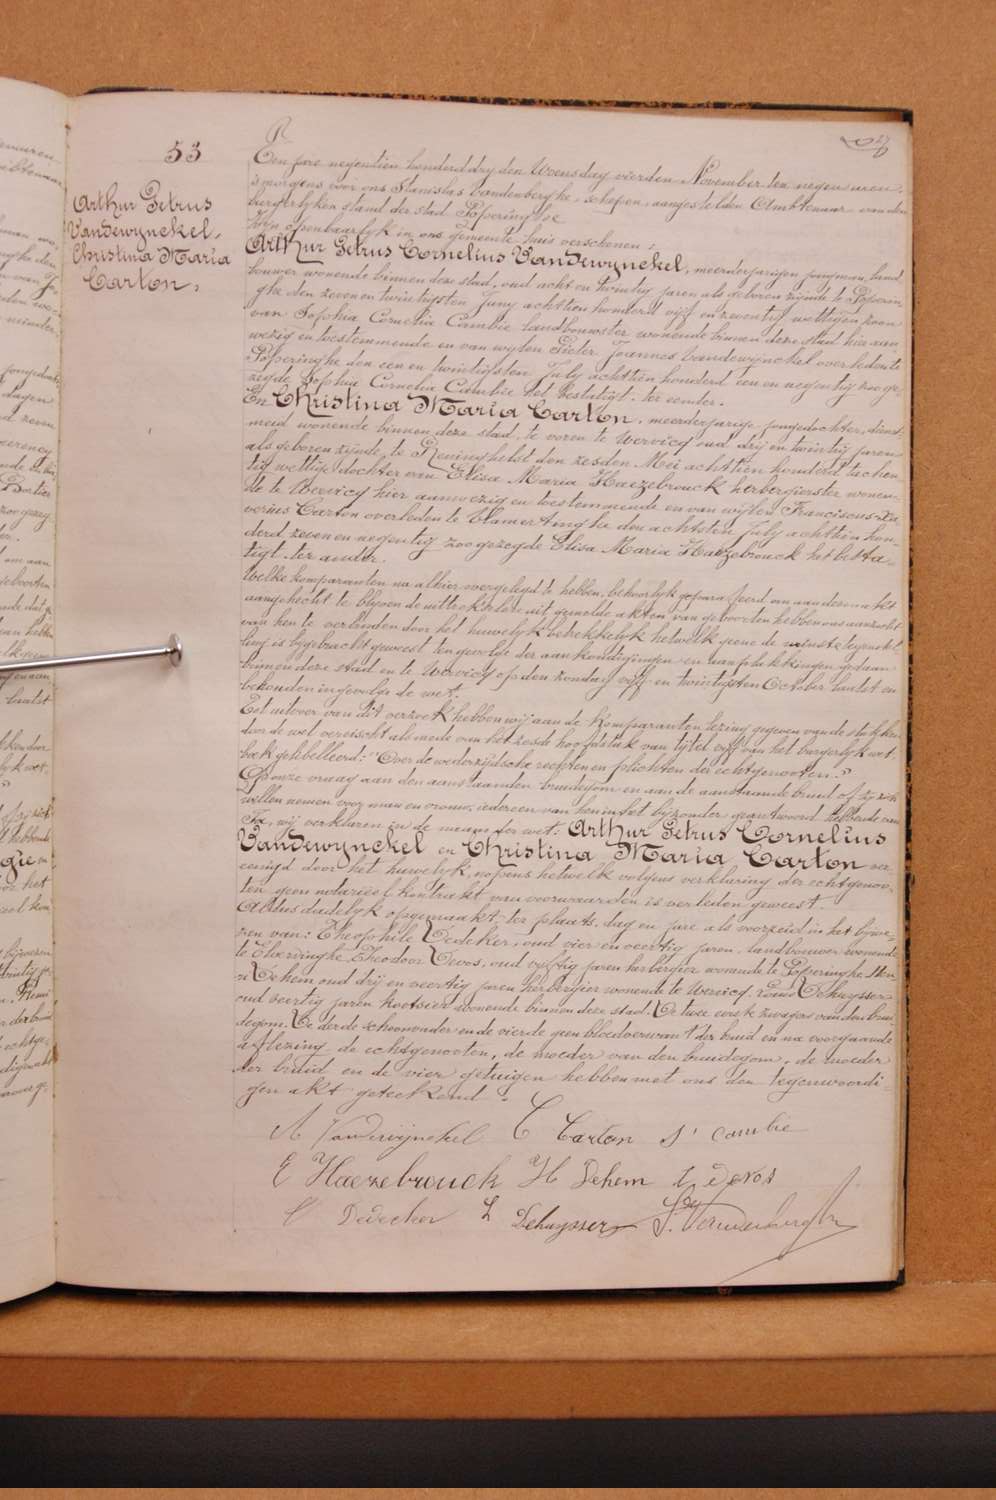 53
Arthur Petrus
Vandewynckel,
Christina Maria
Carton,
Een jare negentien honderd dry den Woensdag vierden November ten negen uren,
's morgens voor ons Stanislas Vandenberghe, schepen, aangestelden Ambtenaar van den
burgerlyken stand der stad Poperinghe
Zyn openbaarlyk in ons gemeente huis verschenen:
Arthur Petrus Cornelius Vandewynckel, meerderjarigen jongman, land-
bouwer wonende binnen deze stad, oud acht en twintig jaren als geboren zynde te Poperin-
ghe den zeven en twintigsten Juny achttien honderd vyf en zeventig wettigen zoon
van Sophia Cornelia Cambie landbouwster wonende binnen deze stad hier aan-
wezig en toestemmende en van wylen Pieter Joannes Vandewynckel overleden te
Poperinghe den een en twintigsten July achttien honderd een en negentig zoo ge-
zegde Sophia Cornelia Cambie het bestatigt. ter eender.
En Christina Maria Carton, meerderjarige jongedochter, dienst-
meid wonende binnen deze stad, te voren te Wervicq oud dry en twintig jaren
als geboren zynde te Reninghelst den zesden Mei achttien honderd tachen-
tig wettige dochter van Elisa Maria Haezebrouck herbergierster wonen-
de te Wervicq hier aanwezig en toestemmende en van wylen Franciscus Xa-
verius Carton overleden te Vlamertinghe den achtsten July achttien hon-
derd zeven en negentig zoo gezegde Elisa Maria Haezebrouck het besta-
tigt. ter ander.
Welke komparanten na alhier overgelegd te hebben, behoorlyk geparafeerd om aan dezen akt
aangehecht te blyven de uittreksels uit gemelde akten van geboorten hebben ons aanzocht
van hen te verbinden door het huwelyk betrekkelyk hetwelk geene de minste tegenstel-
ling is bygebracht geweest ten gevolge der aankondigingen en aanplakkingen gedaan
binnen deze stad en te Wervicq op den zondag vyf en twintigsten October laatst en
behouden ingevolge de wet.
Tot uitvoer van dit verzoek hebben wy aan de komparanten lezing gegeven van de stukken
door de wet vereischt alsmede van het zesde hoofdstuk van tytel vyf van het burgerlyk wet-
boek gelibelleerd: "Over de wederzydsche rechten en plichten der echtgenooten."
Op onze vraag aan den aanstaanden bruidegom en aan de aanstaande bruid of zy zich
willen nemen voor man en vrouw, iedereen van hen in het byzonder geantwoord hebbende van
Ja, wy verklaren in de naam der wet: Arthur Petrus Cornelius
Vandewynckel en Christina Maria Carton ver-
eenigd door het huwelyk, nopens hetwelk volgens verklaring der echtgenoo-
ten geen notarieel kontrakt van voorwaarden is verleden geweest.
Aldus dadelyk opgemaakt, ter plaats, dag en jare als voorzeid in het bywe-
zen van: Theophile Dedeker, oud vier en veertig jaren, landbouwer wonende
te Elverdinghe Theodoor Devos, oud vyftig jaren herbergier wonende te Poperinghe Hen-
ri Dehem oud dry en veertig jaren herbergier wonende te Wervicq Louis Dehuysser
oud veertig jaren koetsier wonende binnen deze stad. De twee eerste zwagers van den brui-
degom. De derde schoonvader en de vierde geen bloedverwant der bruid en na voorgaande
aflezing de echtgenooten, de moeder van den bruidegom, de moeder
der bruid en de vier getuigen hebben met ons den tegenwoordi-
gen akt geteekend.
A Vandewijnckel C Carton S' Cambie
E Haezebrouck H Dehem t devos
Dedecker L Dehuysser S. Vandenberghe